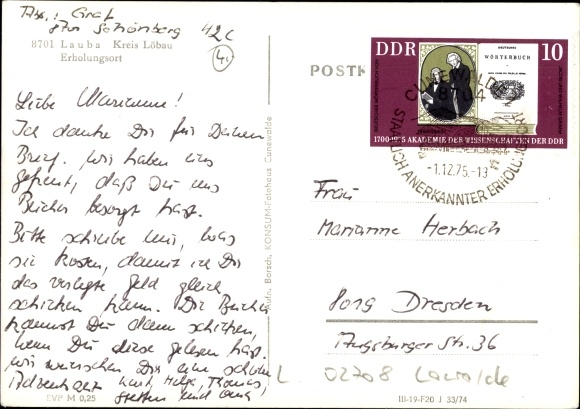 Abs.: Graf
8701 Schönberg
42C
41
8701 Lauba Kreis Löbau
Erholungsort
Liebe Marianne!
Ich danke Dir für Deinen
Brief. Wir haben uns
gefreut, daß Du uns
Bücher besorgt hast.
Bitte schreibe mir, was
sie kosten, damit ich Dir
das verlegte Geld gleich
schicken kann. Die Bücher
kannst Du dann schicken,
wenn Du diese gelesen hast.
Wir wünschen Dir eine schöne
Adventszeit Helga, Thomas,
Steffen und
EVP M 0,25
Borsch, KONSUM-Fotohaus Cunewalde
POSTK
DDR
10
DEUTSCHES
WÖRTERBUCH
1700-1975 AKADEMIE DER WISSENSCHAFTEN DER DDR
CUNEWALDE
8704
-1.12.75.-13
STAATLICH ANERKANNTER ERHOLUNGSORT
Frau
Marianne Herbach
Dresden
Augsburger Str. 36
02708 Lawalde
III-19-F20 J 33/74